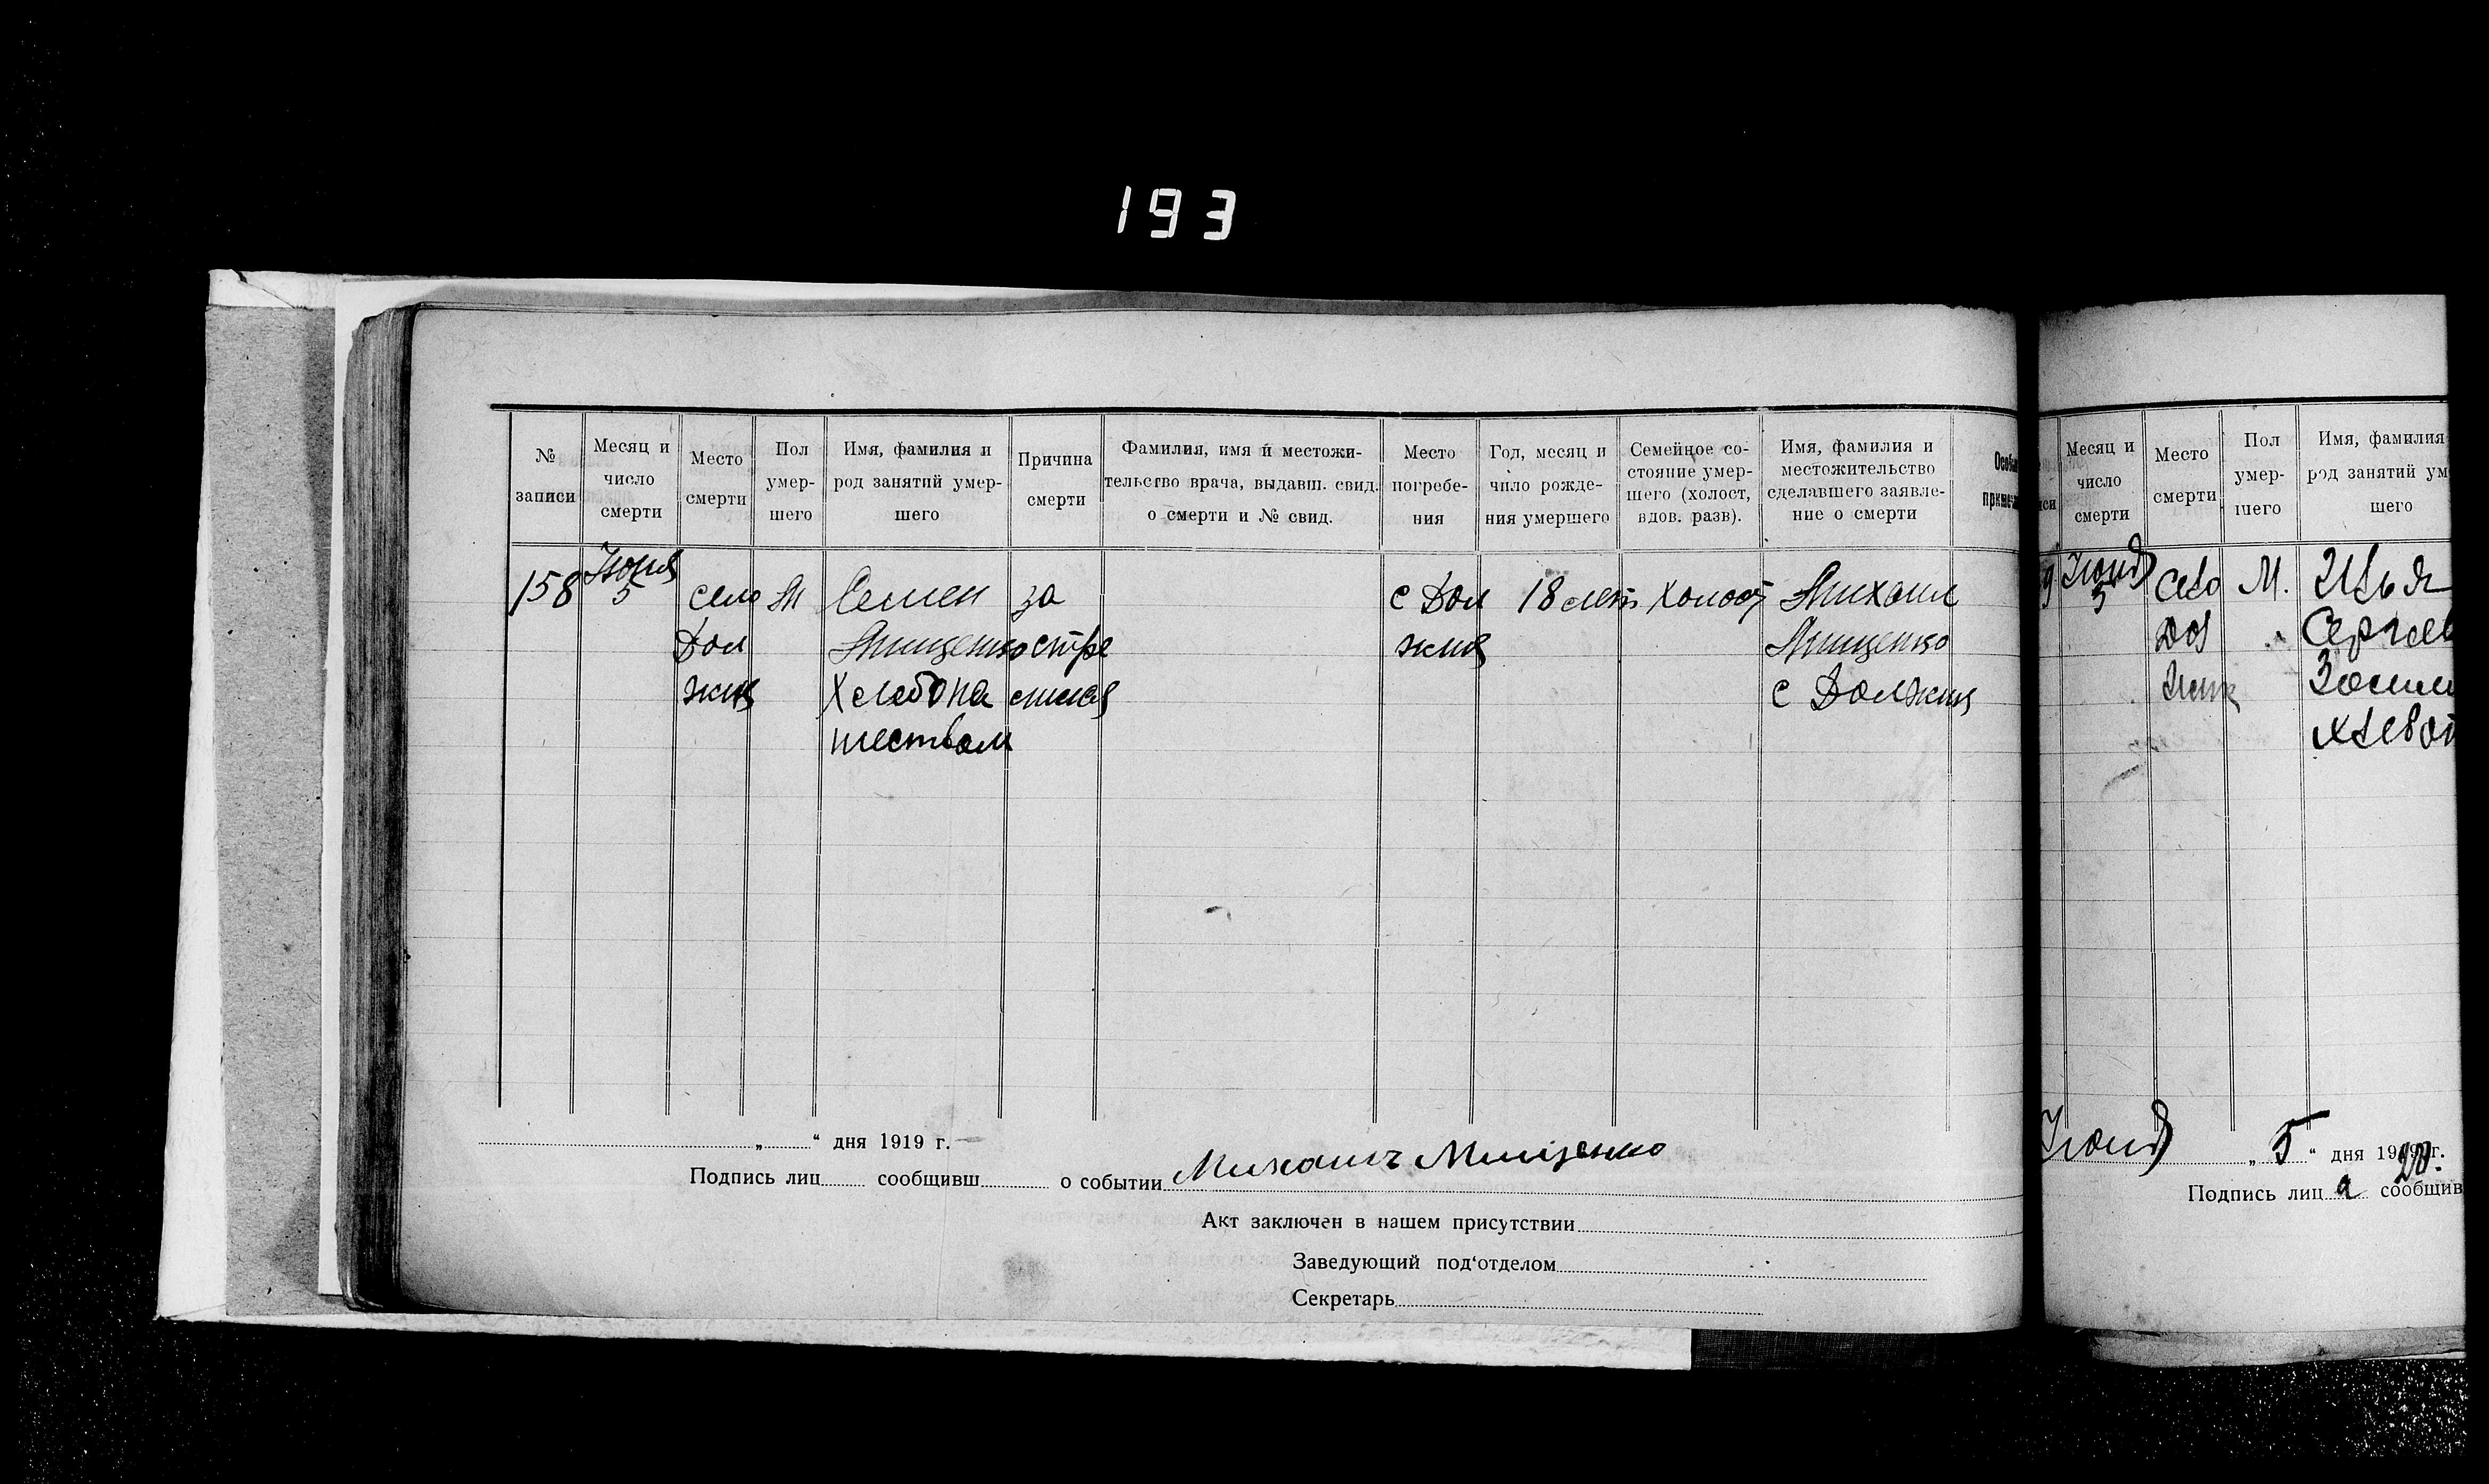 193
№ записи
Месяц и число смерти
Место смерти
Пол умер-шего
Имя, фамилия и род занятий умер-шего
Причина смерти
Фамилия, имя и местожи-тельство врача, выдавш. свид. о смерти и № свид.
Место погребе-ния
Год, месяц и число рожде-ния умершего
Семейное со-стояние умер-шего (холост, вдов. разв).
Имя, фамилия и местожительство сделавшего заявле-ние о смерти
158
Июня 5
село Дол жик
М
Семен Мищенко Хлебопа шеством
за стре лился
с Дол жик
18 лет
холост
Михаил Мищенко с Должик
„ “ дня 1919 г.
Подпись лиц сообщивш о событии Михаилъ Мищенко
Акт заключен в нашем присутствии
Заведующий под‘отделом
Секретарь
Месяц и число смерти
Место смерти
Пол умер-шего
Имя, фамилия
род занятий ум
шего
9
Июня 5
Село Дол жик
М.
Илья
Июня „ 5 “ дня 1920 г.
Подпись лиц а сообщив